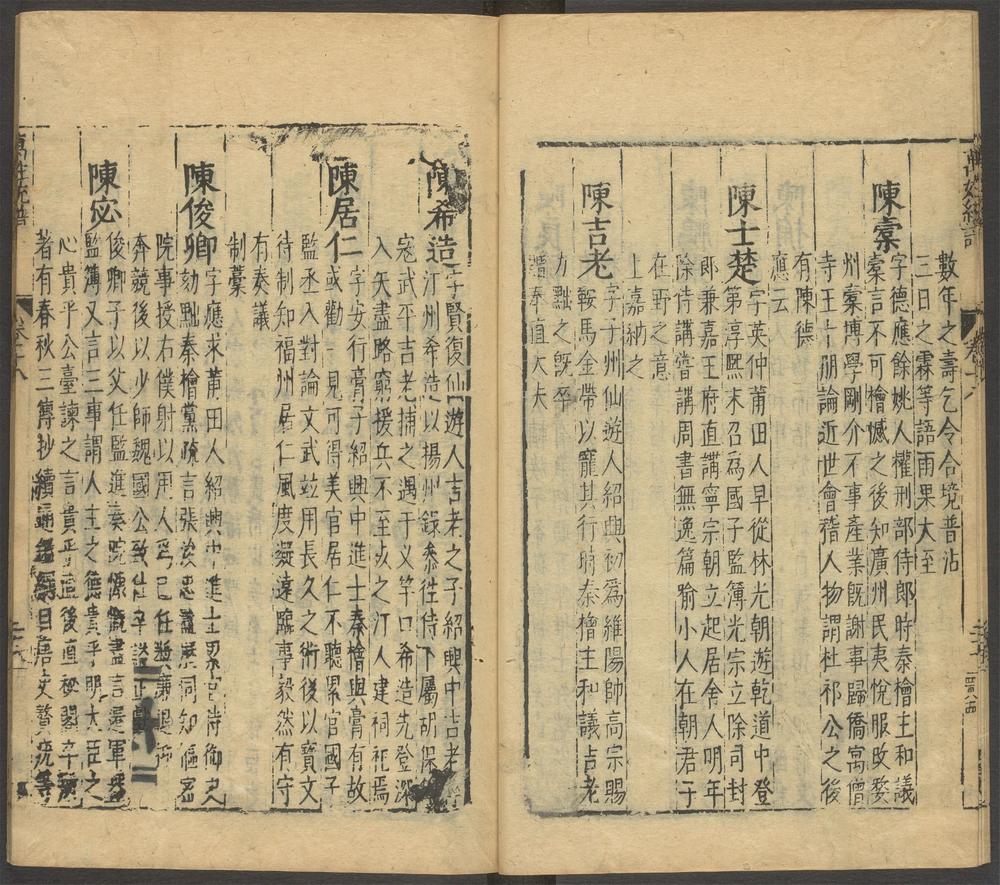 數年之壽乞令合境普沾
三日之霖等語雨果大至
陳橐
字德應餘姚人權刑部侍郎時秦檜主和議
橐言不可檜憾之後知廣州民夷悅服改婺
州橐博學剛介不事產業旣謝事歸僑寓僧
寺王十朋論近世會稽人物謂杜祁公之後
有陳德
應云
陳士楚
字英仲莆田人早從林光朝遊乾道中登
第淳熙末召爲國子監簿光宗立除司封
郎兼嘉王府直講寧宗朝立起居舍人明年
除侍講嘗講周書無逸篇喻小人在朝君子
在野之意
上嘉納之
陳吉老
字子州仙遊人紹興初爲維陽帥高宗賜
鞍馬金帶以寵其行時秦檜主和議吉老
力黜之旣卒
贈奉直大夫
陳希造
字賢復仙遊人吉老之子紹興中吉老
汀州希造以揚州錄參往侍下屬胡保
寇武平吉老捕之遇于义竿口希造先登深
入矢盡路窮援兵不至歿之汀人建祠祀焉
陳居仁
字安行膏子紹興中進士秦檜與膏有故
或勸一見可得美官居仁不聽累官國子
監丞入對論文武竝用長久之術後以寶文
待制知福州居仁風度凝遠臨事毅然有守
有奏議
制藁
陳俊卿
字應求莆田人紹興中進士累官侍御史
劾黜秦檜黨疏言張浚忠藎累同知樞密
院事授右僕射以用人爲己任獎廉退抑
奔競後以少師魏國公致仕卒諡正獻
陳宓
俊卿子以父任監進奏院慷慨盡言遷軍器
監簿又言三事謂人主之德貴乎明大臣之
心貴乎公臺諫之言貴乎直後直秘閣卒
著有春秋三傳抄續通鑑綱目唐史贅疣等